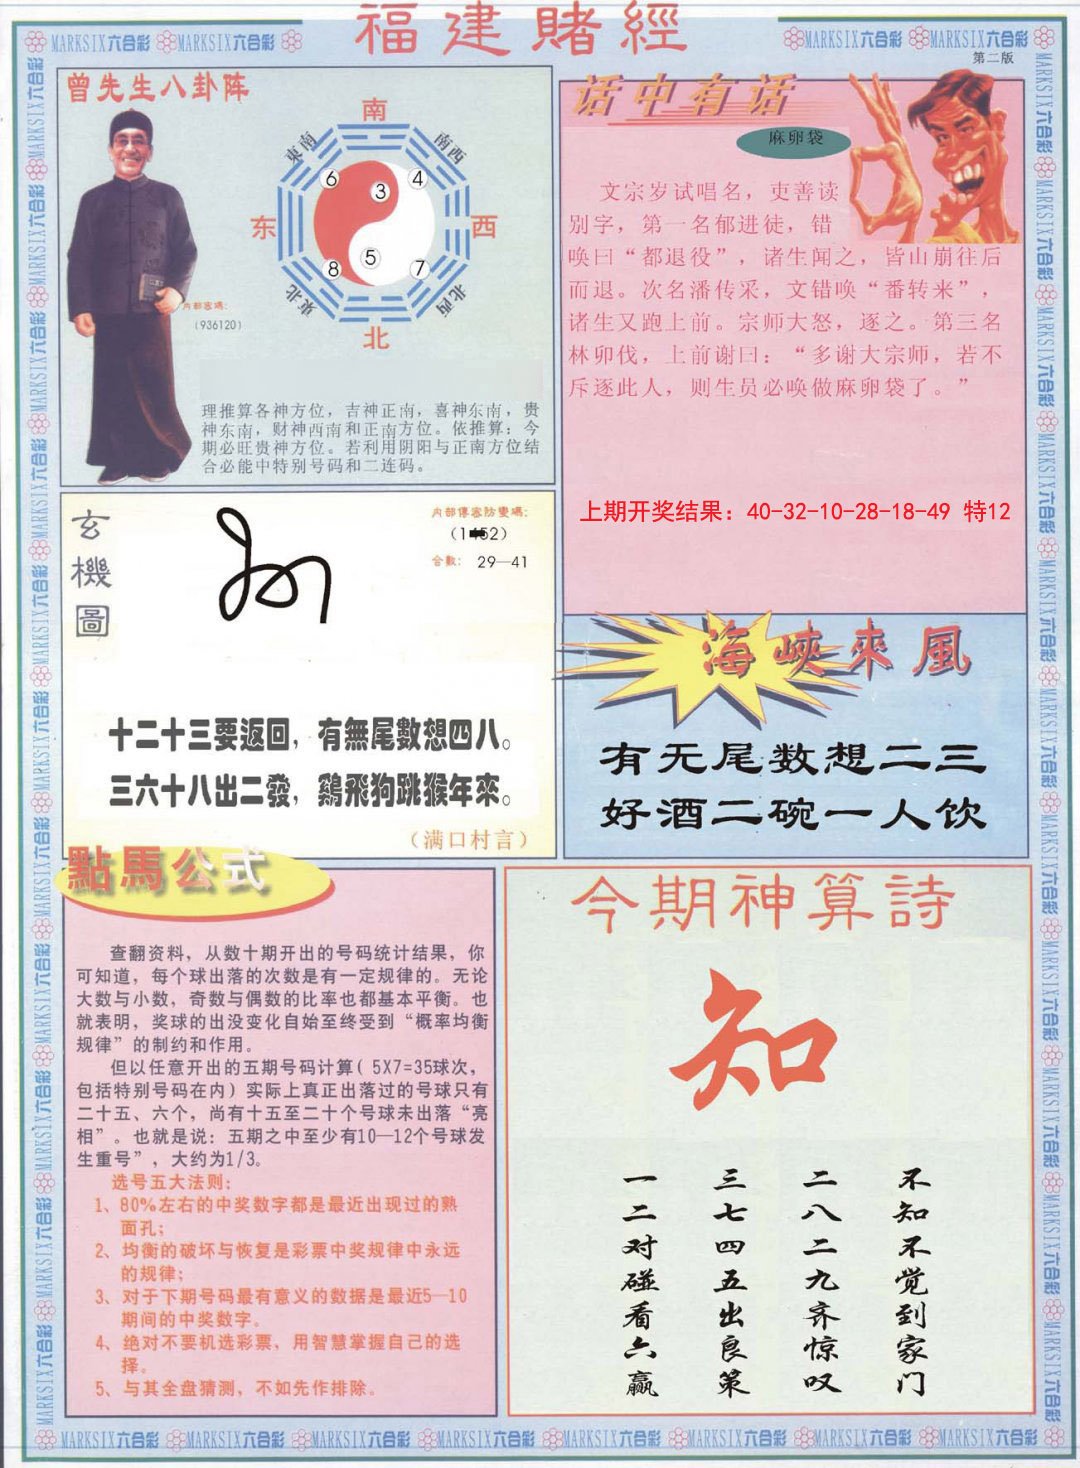 福建賭經
MARKSIX六合彩 MARKSIX六合彩 MARKSIX六合彩 MARKSIX六合彩
第二版
曾先生八卦阵
南
東南
南西
6
3
4
东
西
5
8
7
東北
北西
北
内部密碼:
(936120)
理推算各神方位，吉神正南，喜神东南，贵
神东南，财神西南和正南方位。依推算：今
期必旺贵神方位。若利用阴阳与正南方位结
合必能中特别号码和二连码。
话中有话
麻卵袋
文宗岁试唱名，吏善读
别字，第一名郁进徒，错
唤曰“都退役”，诸生闻之，皆山崩往后
而退。次名潘传采，文错唤“番转来”，
诸生又跑上前。宗师大怒，逐之。第三名
林卯伐，上前谢曰：“多谢大宗师，若不
斥逐此人，则生员必唤做麻卵袋了。”
上期开奖结果：40-32-10-28-18-49 特12
玄機圖
内部傳密防變碼:
合數: 29—41
十二十三要返回，有無尾數想四八。
三六十八出二發，鷄飛狗跳猴年來。
（满口村言）
海峽來風
有无尾数想二三
好酒二碗一人饮
點馬公式
查翻资料，从数十期开出的号码统计结果，你
可知道，每个球出落的次数是有一定规律的。无论
大数与小数，奇数与偶数的比率也都基本平衡。也
就表明，奖球的出没变化自始至终受到“概率均衡
规律”的制约和作用。
但以任意开出的五期号码计算( 5X7=35球次，
包括特别号码在内) 实际上真正出落过的号球只有
二十五、六个，尚有十五至二十个号球未出落“亮
相”。也就是说：五期之中至少有10—12个号球发
生重号”，大约为1/3。
选号五大法则：
1、80%左右的中奖数字都是最近出现过的熟
面孔；
2、均衡的破坏与恢复是彩票中奖规律中永远
的规律；
3、对于下期号码最有意义的数据是最近5—10
期间的中奖数字。
4、绝对不要机选彩票，用智慧掌握自己的选
择。
5、与其全盘猜测，不如先作排除。
今期神算詩
知
不知不觉到家门
二八二九齐惊叹
三七四五出良策
一二对碰看六赢
MARKSIX六合彩 MARKSIX六合彩 MARKSIX六合彩 MARKSIX六合彩 MARKSIX六合彩 MARKSIX六合彩 MARKSIX六合彩 MARKSIX六合彩